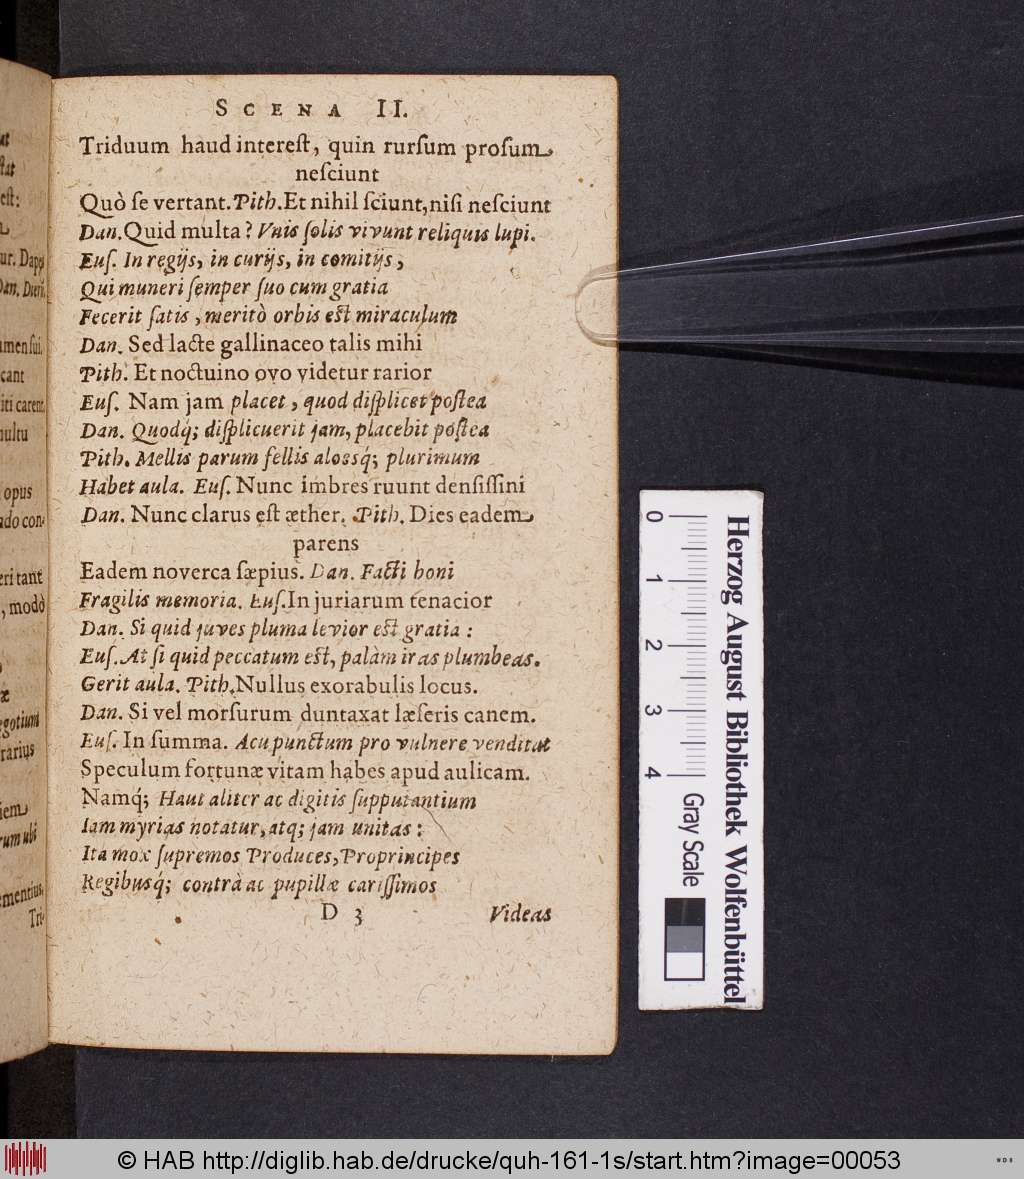 SCENA II.
Triduum haud interest, quin rursum prosum
nesciunt
Quò se vertant. Pith. Et nihil sciunt, nisi nesciunt
Dan. Quid multa? Vnis solis vivunt reliquis lupi.
Eus. In regijs, in curijs, in comitijs,
Qui muneri semper suo cum gratia
Fecerit satis, meritò orbis est miraculum
Dan. Sed lacte gallinaceo talis mihi
Pith. Et noctuino ovo videtur rarior
Eus. Nam jam placet, quod displicet postea
Dan. Quodq́; displicuerit jam, placebit postea
Pith. Mellis parum fellis alossq́; plurimum
Habet aula. Eus. Nunc imbres ruunt densissini
Dan. Nunc clarus est æther. Pith. Dies eadem
parens
Eadem noverca sæpius. Dan. Facti boni
Fragilis memoria. Eus. Injuriarum tenacior
Dan. Si quid juves pluma levior est gratia:
Eus. At si quid peccatum est, palàm iras plumbeas.
Gerit aula. Pith. Nullus exorabulis locus.
Dan. Si vel morsurum duntaxat læseris canem.
Eus. In summa. Acu punctum pro vulnere venditat
Speculum fortunæ vitam habes apud aulicam.
Namq́; Haut aliter ac digitis supputantium
Iam myrias notatur, atq; jam unitas:
Ita mox supremos Produces, Proprincipes
Regibusq́; contrà ac pupillæ carissimos
D 3 Videas
0 1 2 3 4
Herzog August Bibliothek Wolfenbüttel
Gray Scale
© HAB http://diglib.hab.de/drucke/quh-161-1s/start.htm?image=00053